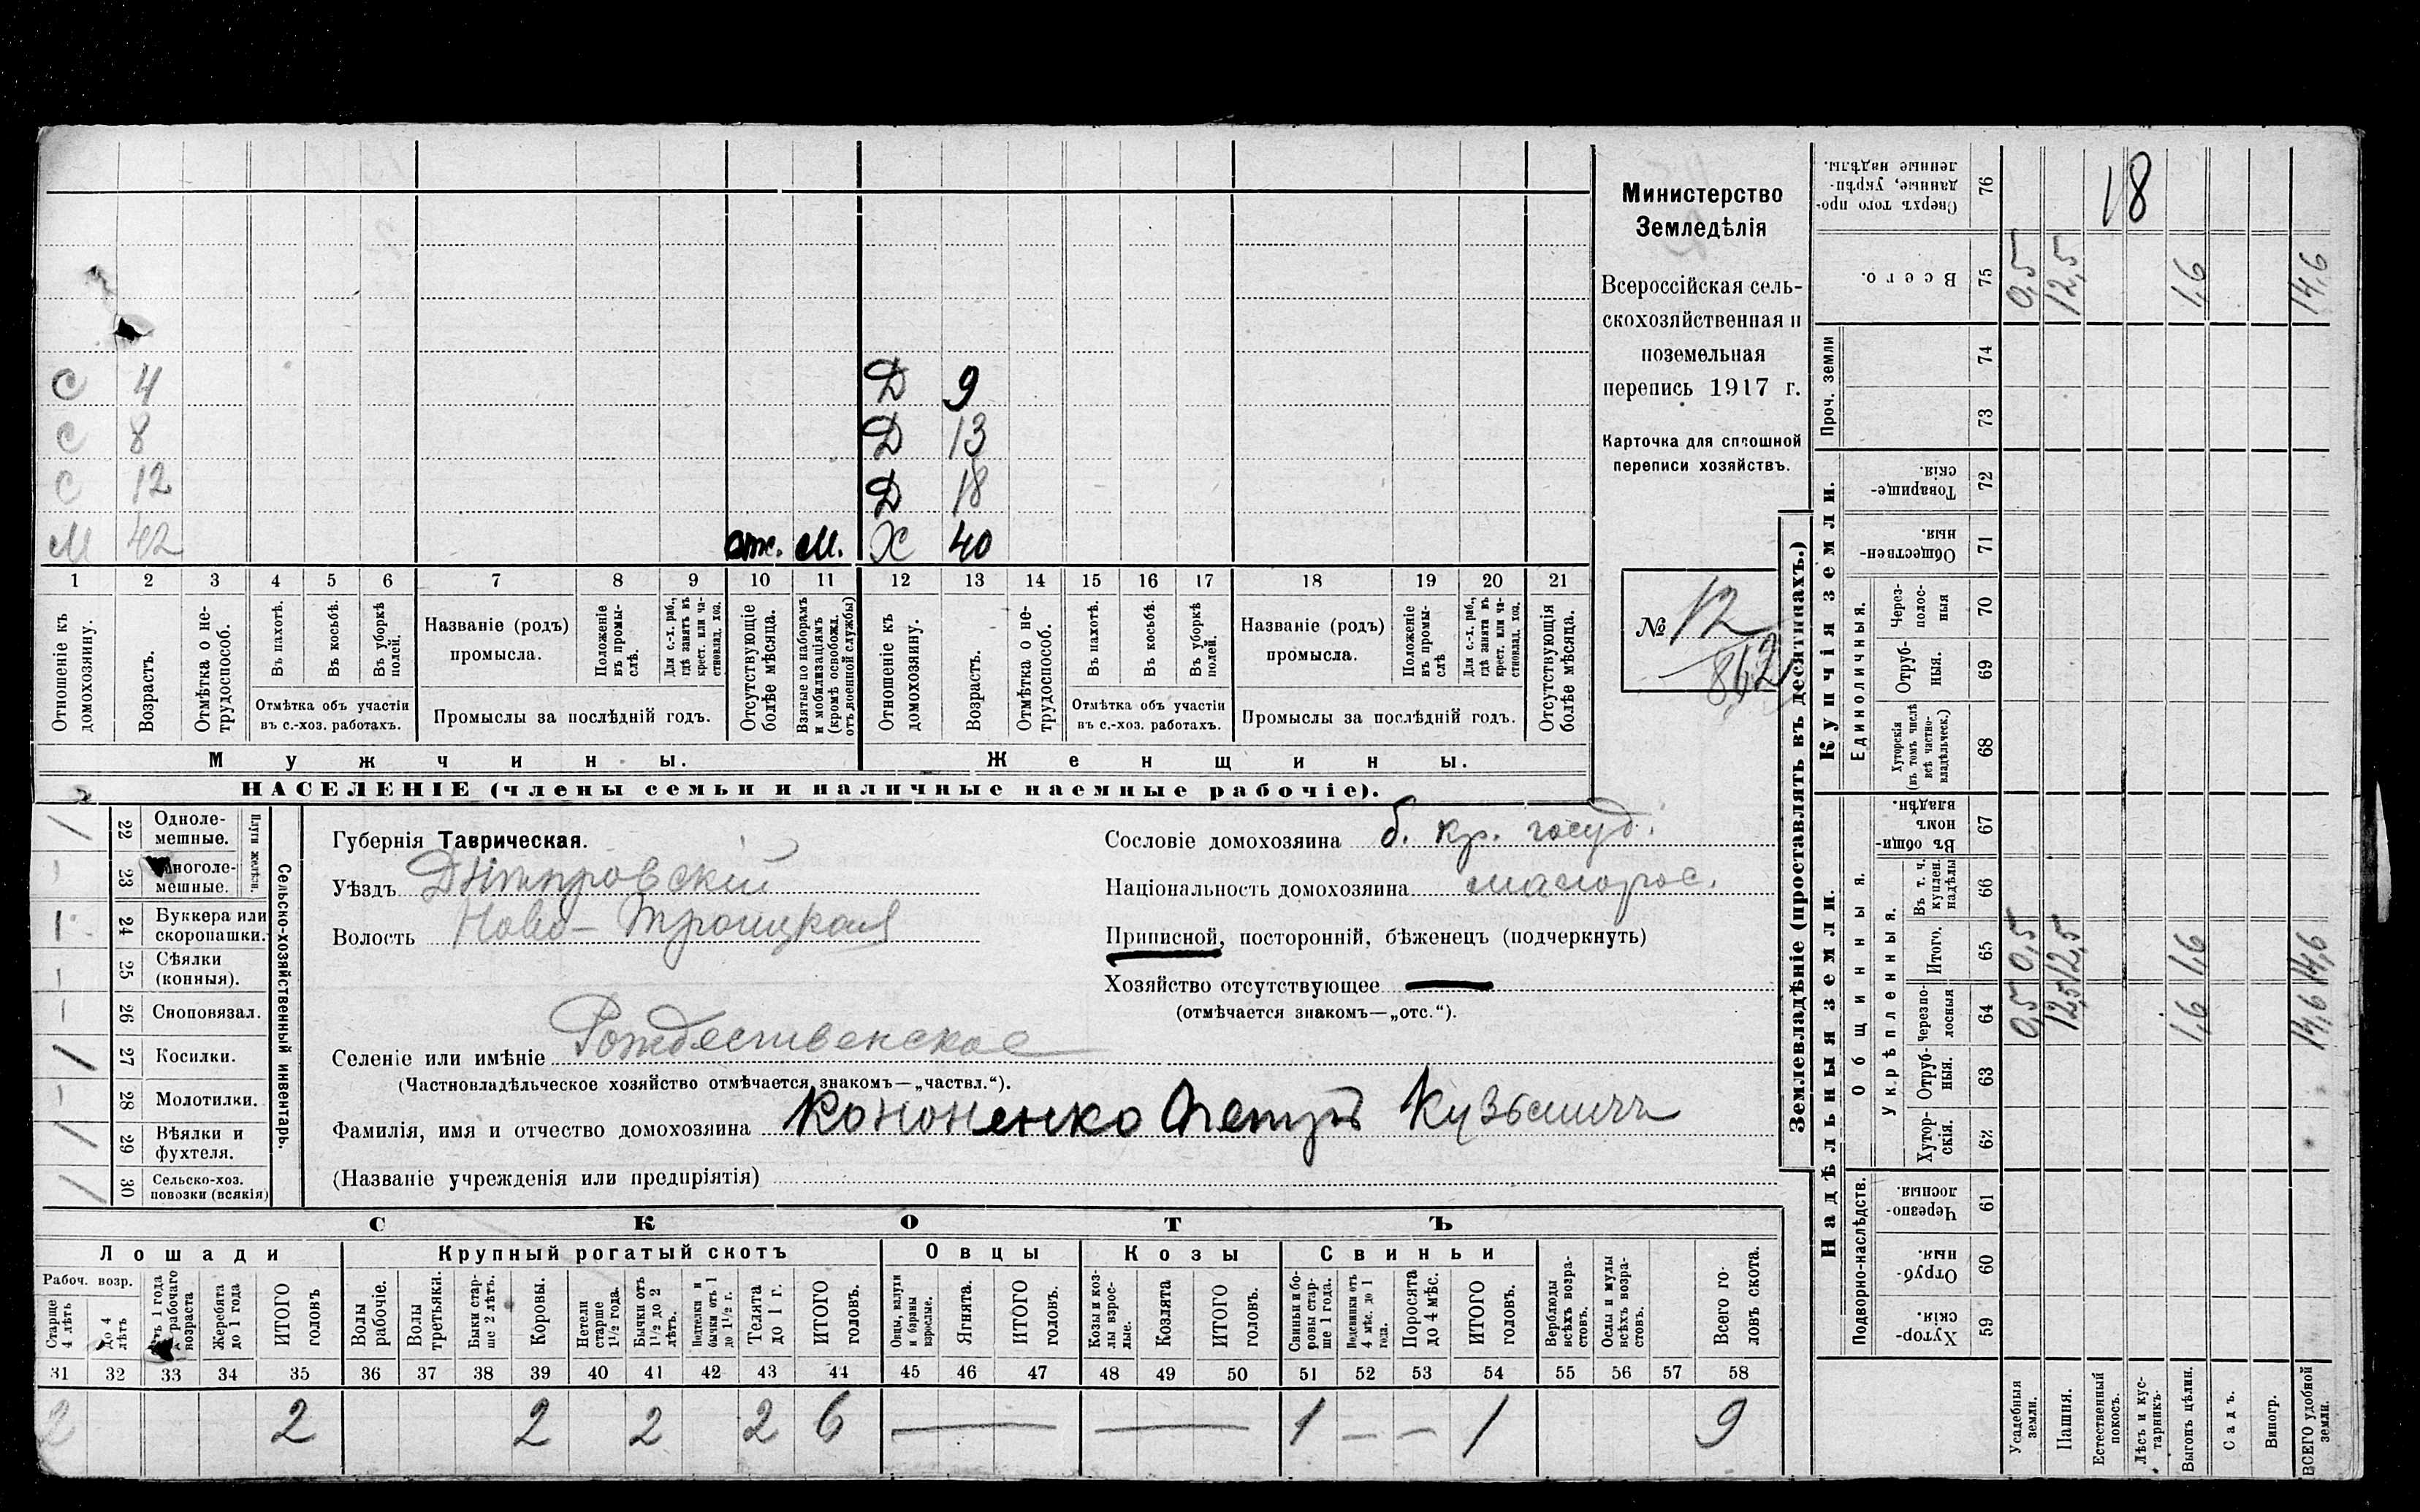 С 4 Д 9
С 8 Д 13
С 12 Д 18
М 42 отс. М. Х 40
1 2 3 4 5 6 7 8 9 10 11 12 13 14 15 16 17 18 19 20 21
Отношеніе къ домохозяину.
Возрастъ.
Отмѣтка о нетрудоспособ.
Въ пахотѣ.
Въ косьбѣ.
Въ уборкѣ полей.
Отмѣтка объ участіи
въ с.-хоз. работахъ.
Названіе (родъ)
промысла.
Положеніе въ промыслѣ.
Для с.-х. раб., гдѣ занятъ въ крест. или частновлад. хоз.
Промыслы за послѣдній годъ.
Отсутствующіе болѣе мѣсяца.
Взятые по наборамъ и мобилизаціямъ (кромѣ освобожд. отъ военной службы)
Отношеніе къ домохозяину.
Возрастъ.
Отмѣтка о нетрудоспособ.
Въ пахотѣ.
Въ косьбѣ.
Въ уборкѣ полей.
Отмѣтка объ участіи
въ с.-хоз. работахъ.
Названіе (родъ)
промысла.
Положеніе въ промыслѣ
Для с.-х. раб., гдѣ занята въ крест. или частновлад. хоз.
Промыслы за послѣдній годъ.
Отсутствующія болѣе мѣсяца.
Мужчины.
Женщины.
НАСЕЛЕНІЕ (члены семьи и наличные наемные рабочіе).
Министерство
Земледѣлія
Всероссійская сель-
скохозяйственная и
поземельная
перепись 1917 г.
Карточка для сплошной
переписи хозяйствъ.
№ 12
862
Сельско-хозяйственный инвентарь.
Плуги желѣзн.
/ 22 Однолемешные.
- 23 Многолемешные.
1 24 Буккера или скоропашки.
- 25 Сѣялки (конныя).
- 26 Сноповязал.
/ 27 Косилки.
- 28 Молотилки.
/ 29 Вѣялки и фухтеля.
/ 30 Сельско-хоз. повозки (всякія)
Губернія Таврическая.
Уѣздъ Днѣпровскій
Волость Ново-Троицкая
Селеніе или имѣніе Рождественское
(Частновладѣльческое хозяйство отмѣчается знакомъ—„частвл.“).
Фамилія, имя и отчество домохозяина Кононенко Петръ Кузьмичъ
(Названіе учрежденія или предпріятія)
Сословіе домохозяина б. кр. госуд.
Національность домохозяина малорос.
Приписной, посторонній, бѣженецъ (подчеркнуть)
Хозяйство отсутствующее —
(отмѣчается знакомъ—„отс.“).
СКОТЪ
Лошади
Крупный рогатый скотъ
Овцы
Козы
Свиньи
Рабоч. возр.
Старше 4 лѣтъ
До 4 лѣтъ
Отъ 1 года до рабочаго возраста
Жеребята до 1 года
ИТОГО головъ
Волы рабочіе.
Волы третьяки.
Быки старше 2 лѣтъ.
Коровы.
Нетели старше 1½ года.
Бычки отъ 1½ до 2 лѣтъ.
Подтелки и бычки отъ 1 до 1½ г.
Телята до 1 г.
ИТОГО головъ.
Овцы, валухи и бараны взрослые.
Ягнята.
ИТОГО головъ.
Козы и козлы взрослые.
Козлята
ИТОГО головъ.
Свиньи и боровы старше 1 года.
Подсвинки отъ 4 мѣс. до 1 года.
Поросята до 4 мѣс.
ИТОГО головъ.
Верблюды всѣхъ возрастовъ.
Ослы и мулы всѣхъ возрастовъ.
Всего головъ скота.
31 32 33 34 35 36 37 38 39 40 41 42 43 44 45 46 47 48 49 50 51 52 53 54 55 56 57 58
2 2 2 2 2 6 — — 1 – – 1 9
Землевладѣніе (проставлять въ десятинахъ.)
Надѣльныя земли.
Купчія земли.
Проч. земли
Сверхъ того проданные, укрѣпленные надѣлы. 76 18
Всего. 75 0,5 12,5 1,6 14,6
74
73
Товарищескія. 72
Общественныя. 71
Единоличныя.
Черезполосныя 70
Отрубныя. 69
Хуторскія (въ томъ числѣ всѣ частновладѣльческ.) 68
Общинныя.
Укрѣпленныя.
Въ общинномъ владѣн. 67
Въ т. ч. куплен. надѣлы 66
Итого. 65 0,5 12,5 1,6 14,6
Черезполосныя 64 0,5 12,5 1,6 14,6
Отрубныя. 63
Хуторскія. 62
Подворно-наслѣдств.
Черезполосныя. 61
Отрубныя. 60
Хуторскія. 59
Усадебныя земли.
Пашня.
Естественный покосъ.
Лѣсъ и кустарникъ.
Выгонъ цѣлин.
Садъ.
Виногр.
ВСЕГО удобной земли.